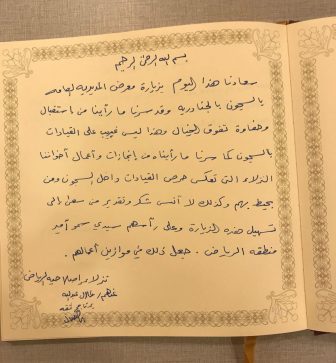 بسم الله الرحمن الرحيم
سعدنا هذا اليوم بزيارة معرض المديرية العامه
بالسجون بالجنادريه وقد سرنا ما رأينا من استقبال
وحفاوة تفوق الخيال وهذا ليس غريب على القيادات
بالسجون كما سرنا ما رأيناه من إنجازات وأعمال أخواننا
النزلاء التي تعكس حرص القيادات داخل السجون ومن
يحيط بهم وكذلك لا أنسى شكر وتقدير من سعى إلى
تسهيل هذه الزيارة وعلى رأسهم سيدي سمو أمير
منطقة الرياض . جعل ذلك في موازين أعمالهم .
نزلاء إصلاحية الرياض
عنهم /